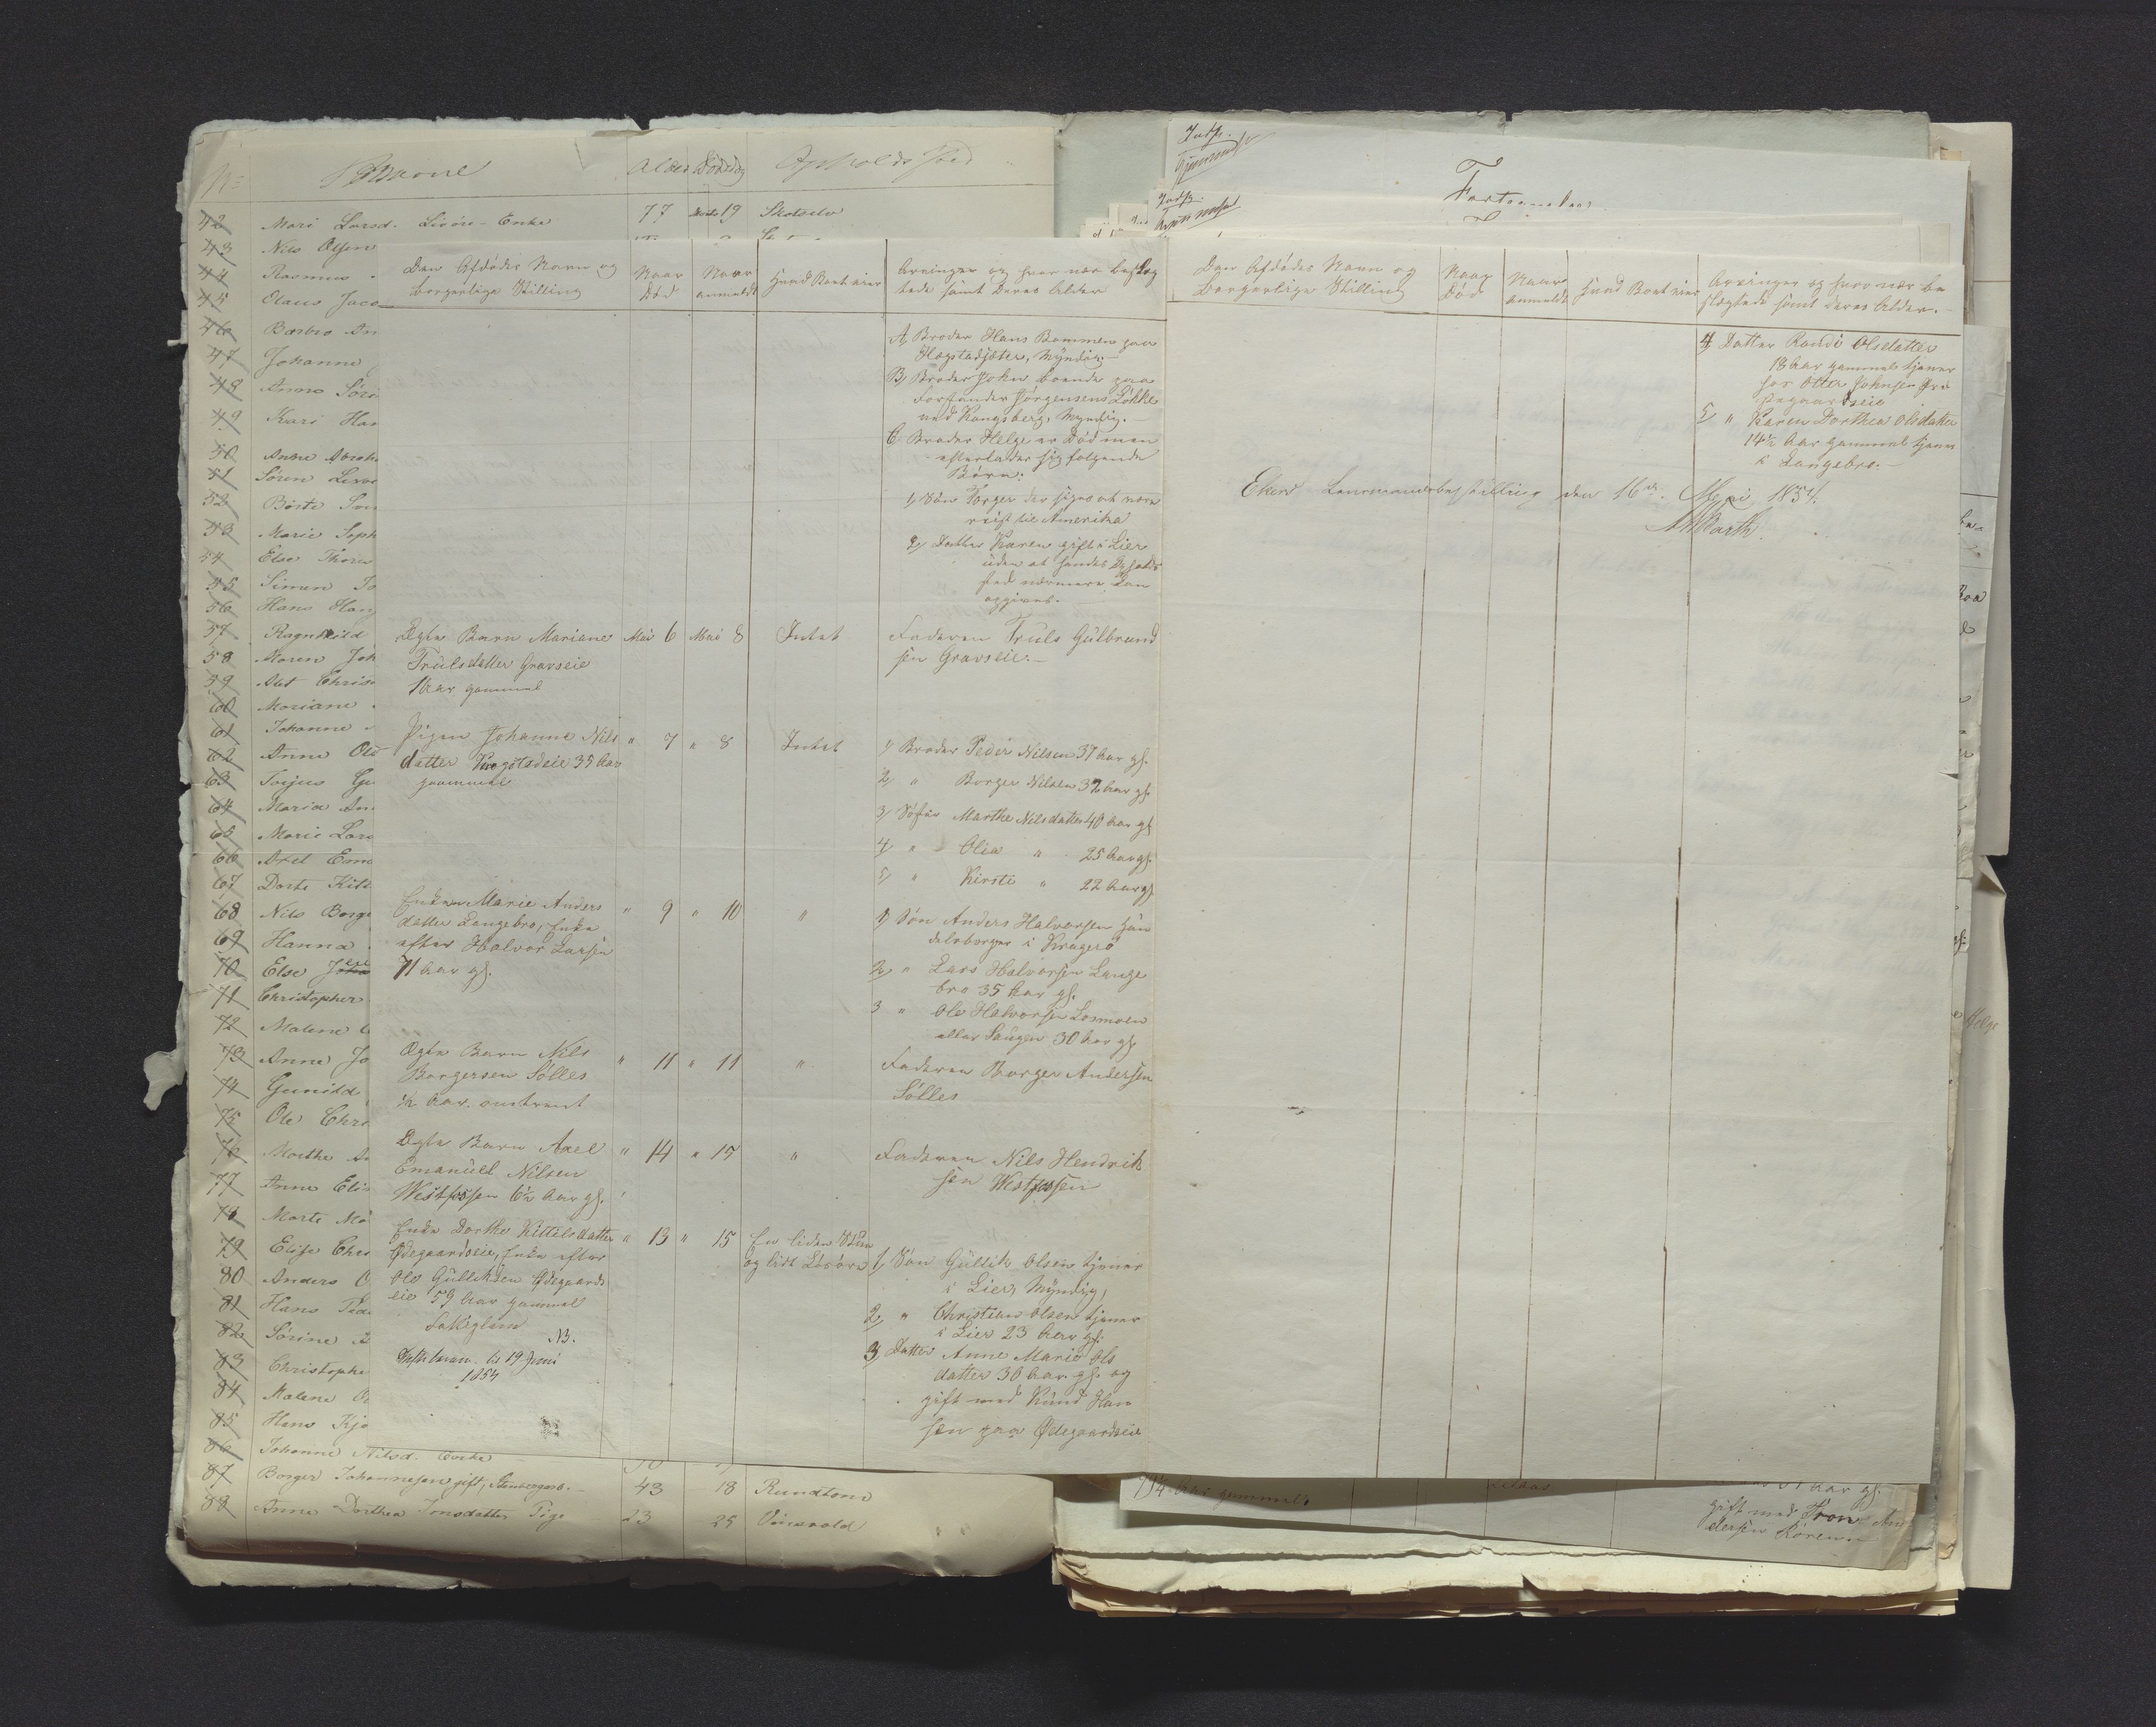 No Navne Alder Dødsdag Opholds Sted
42 Mari Larsd. Enke 77 19 Skotselv
43 Nils Olsen
44 Rasmus
45 Olaus Jaco
46 Barbro An
47 Johanne
48 Anne Søre
49 Kari Han
50 Anne Abrah
51 Søren
52 Birte
53 Marie Soph
54 Else Thores
55 Simen Jo
56 Hans Han
57 Ragnhild
58 Maren Joh
59 Alet Chris
60 Mariane
61 Johanne
62 Anne Ols
63 Torjus Gu
64 Maria An
65 Marie Lars
66 Axel Ema
67 Dorte Kitt
68 Nils Borge
69 Hanna
70 Else
71 Christopher
72 Malene
73 Anne Jo
74 Gunild
75 Ole Chri
76 Marthe A
77 Anne Elis
78 Marte Mo
79 Elise Chri
80 Anders O
81 Hans Ped
82 Sørine
83 Christophe
84 Malene
85 Hans Kjo
86 Johanne Nilsd. Enke
87 Borger Johannesen, gift, 43 18 Rundtom
88 Anne Dorthea Jonsdatter Pige 23 25
Den Afdødes Navn og
borgerlige Stilling
Naar
Død
Naar
anmeldt
Hvad Boet eier
Arvinger og hvor nær beslæg
tede samt deres Alder
A, Broder Hans Bommen paa
Hægstadsæter, Myndig.
B, Broder John boende paa
Forstander Jørgensens Løkke
ved Kongsberg, Myndig.
C, Broder Helge er Død men
efterlader sig følgende
Børn:
1, Søn Torger der siges at være
reist til Amerika
2, Datter Karen gift i Lier
uden at hendes Opholds
sted nærmere kan
opgives.
Ægte Barn Mariane Mai 6 Mai 8 Intet Faderen Truls Gulbrand
Trulsdatter Gravseie sen Gravseie.
1 Aar gammel
Pigen Johanne Nils " 7 " 8 Intet 1, Broder Peder Nilsen 37 Aar gl.
datter 35 Aar 2, " Borger Nilsen 32 Aar gl.
gammel
3, Søster Marthe Nilsdatter 40 Aar gl
4, " Olia " 25 Aar gl.
5, " Kirsti " 22 Aar gl
Enken Marie Anders " 9 " 10 " 1, Søn Anders Halvorsen Han
datter Langebro, Enke delsborger i Kragerø
efter Halvor Larsen 2, " Lars Halvorsen Lange
71 Aar gl. bro 35 Aar gl.
3 " Ole Halvorsen Losmoen
eller Haugen 30 Aar gl
Ægte Barn Nils " 11 " 11 " Faderen Borger Andersen
Borgersen Sølles Sølles
½ Aar omtrent
Ægte Barn Axel " 14 " 15 " Faderen Nils Hendrik
Emanuel Nilsen sen Westfossen
Westfossen 6½ Aar gl.
Enke Dorthe Kittilsdatter " 13 " 15 En liden Stue
Ødegaardseie, Enke efter og lidt Løsøre 1, Søn Gullik Olsen tjener
Ole Gulliksen Ødegaards i Lier, Myndig,
eie 59 Aar gammel 2, " Christian Olsen tjener
i Lier 23 Aar gl:
NB. 3, Datter Anne Marie Ols
til 19 Juni datter 30 Aar gl. og
1854 gift med Knud Han
sen paa Ødegaardseie
Fortegnelse
Den Afdødes Navn og
borgerlige Stilling
Naar
Død
Naar
anmeldt
Hvad Boet eier
Arvinger og hvor nær be
slægtede samt deres Alder.
4, Datter Randi Olsdatter
18 Aar gammel tjener
hos Otter Johnsen Øde
gaardseie
5, " Karen Dorthea Olsdatter
14½ Aar gammel tjener
i Langebro.
Eker Lensmandsbestilling den 16de Mai 1854.
Barth
Aar gammel
Aar gl.
gift med Iver An
dersen
Helge